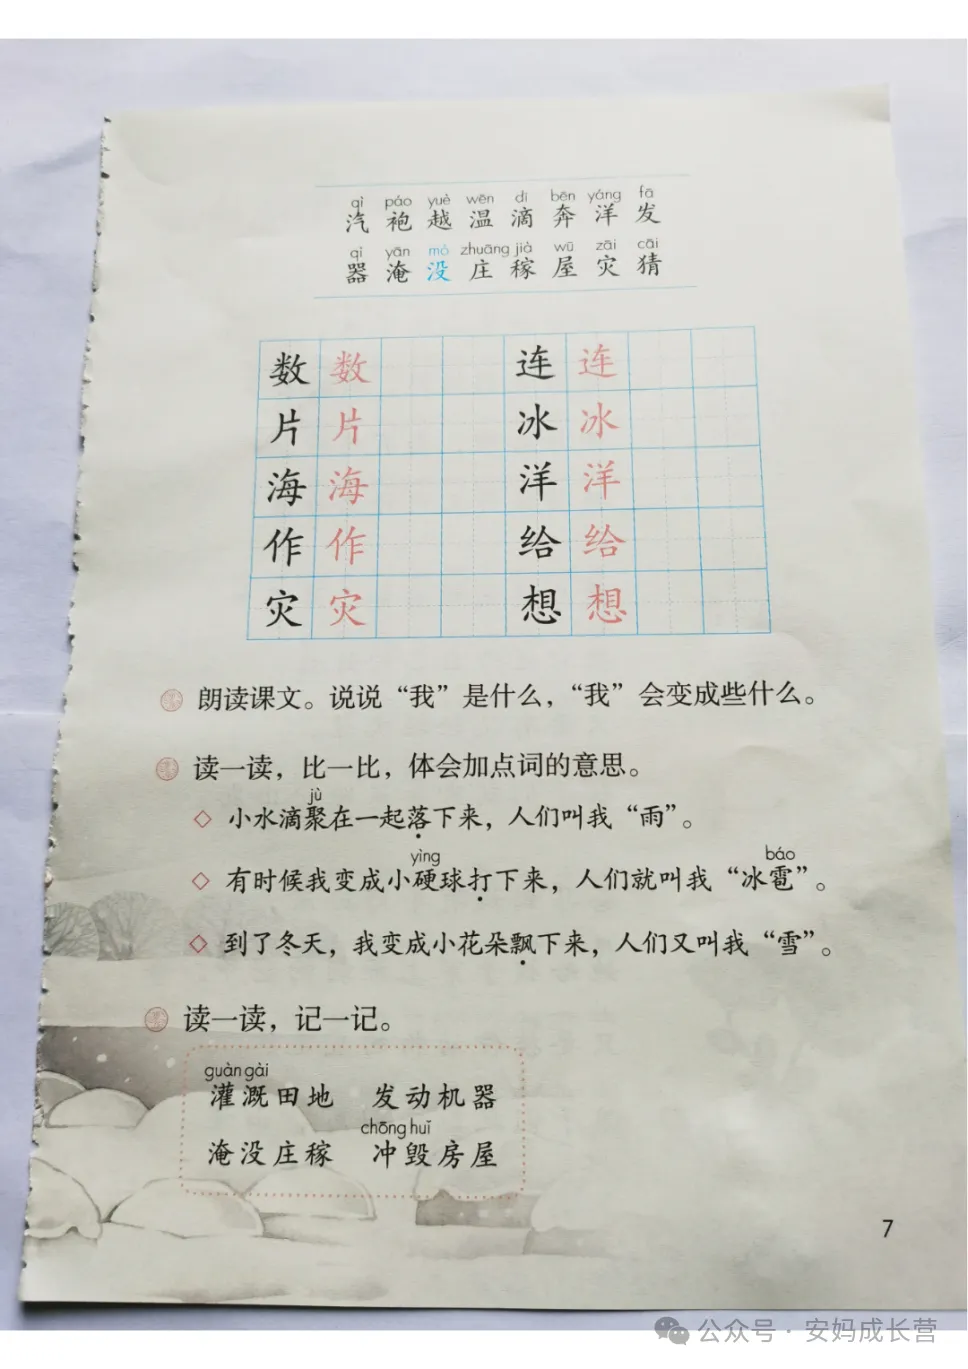 qì páo yuè wēn dī bēn yáng fā
汽 袍 越 温 滴 奔 洋 发
qì yān mò zhuāng jià wū zāi cāi
器 淹 没 庄 稼 屋 灾 猜
数 数 连 连
片 片 冰 冰
海 海 洋 洋
作 作 给 给
灾 灾 想 想
朗读课文。说说“我”是什么，“我”会变成些什么。
读一读，比一比，体会加点词的意思。
jù
◇ 小水滴聚在一起落下来，人们叫我“雨”。
yìng báo
◇ 有时候我变成小硬球打下来，人们就叫我“冰雹”。
◇ 到了冬天，我变成小花朵飘下来，人们又叫我“雪”。
读一读，记一记。
guàn gài
灌溉田地 发动机器
chōng huǐ
淹没庄稼 冲毁房屋
7
公众号·安妈成长营